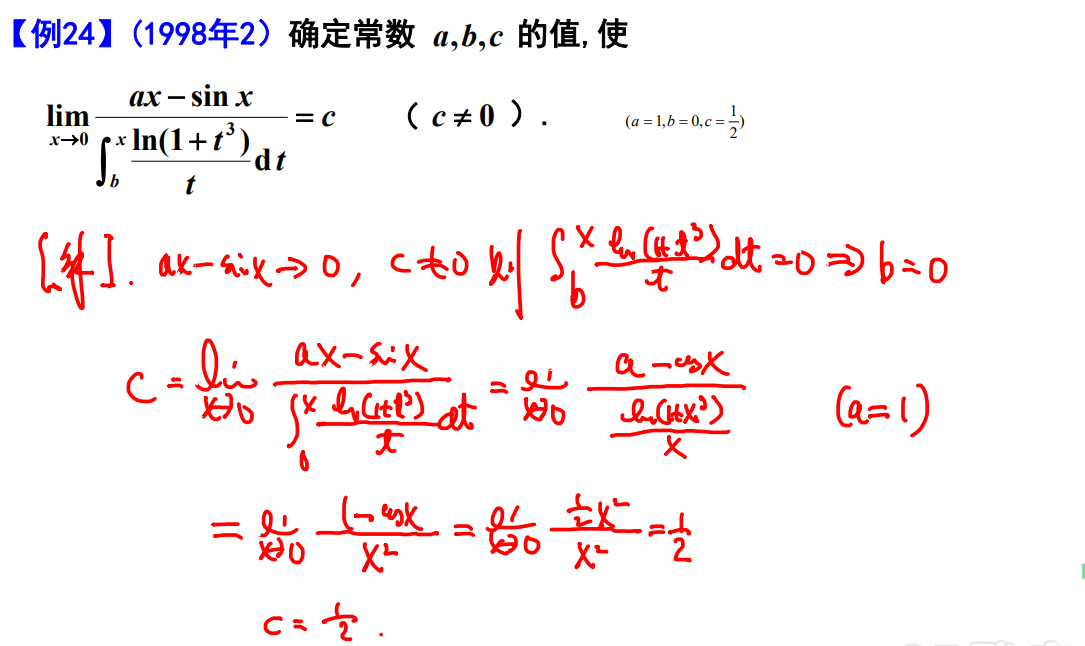 【例24】(1998年2) 确定常数 a,b,c 的值, 使
lim_{x→0} \frac{ax - sin x}{∫_b^x \frac{ln(1+t^3)}{t} dt} = c ( c ≠ 0 ). (a = 1, b = 0, c = \frac{1}{2})
[解]. ax - sin x → 0, c ≠ 0 则 ∫_b^x \frac{ln(1+t^3)}{t} dt = 0 ⇒ b = 0
C = lim_{x→0} \frac{ax - sin x}{∫_0^x \frac{ln(1+t^3)}{t} dt} = lim_{x→0} \frac{a - cos x}{\frac{ln(1+x^3)}{x}} (a=1)
= lim_{x→0} \frac{1 - cos x}{x^2} = lim_{x→0} \frac{\frac{1}{2}x^2}{x^2} = \frac{1}{2}
c = \frac{1}{2}.